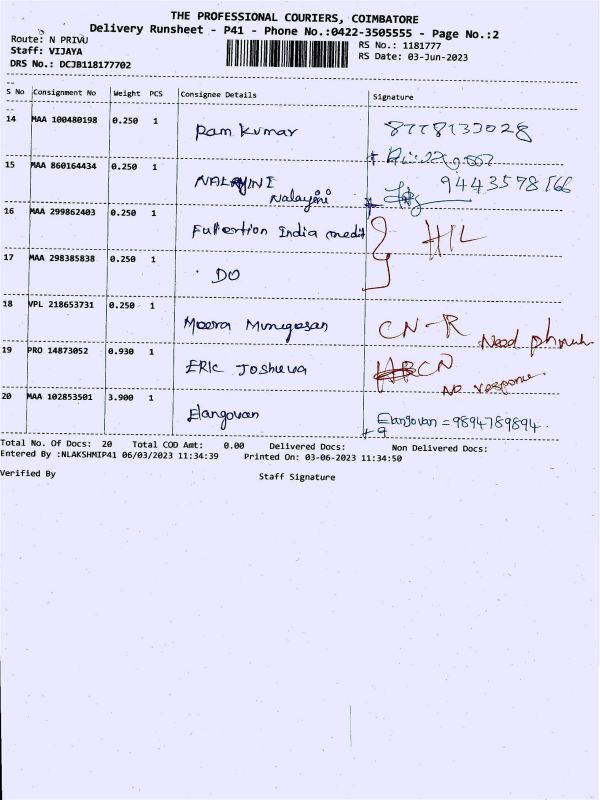 THE PROFESSIONAL COURIERS, COIMBATORE
Delivery Runsheet - P41 - Phone No.:0422-3505555 - Page No.:2
Route: N PRIVU
RS No.: 1181777
Staff: VIJAYA
RS Date: 03-Jun-2023
DRS No.: DCJB118177702
S No Consignment No Weight PCS Consignee Details Signature
14 MAA 100480198 0.250 1 Ram Kumar 8778135028
15 MAA 860164434 0.250 1 NALAYINI 9443578166
Nalayini
16 MAA 299862403 0.250 1 Fullertion India credit H/L
17 MAA 298385838 0.250 1 DO
18 VPL 218653731 0.250 1 Meera Murugesan CN-R Need ph
19 PRO 14873052 0.930 1 ERIC Josheva CN
No response.
20 MAA 102853501 3.900 1 Elangovan Elangovan = 9894789894.
Total No. Of Docs: 20 Total COD Amt: 0.00 Delivered Docs: Non Delivered Docs:
Entered By :NLAKSHMIP41 06/03/2023 11:34:39 Printed On: 03-06-2023 11:34:50
Verified By Staff Signature